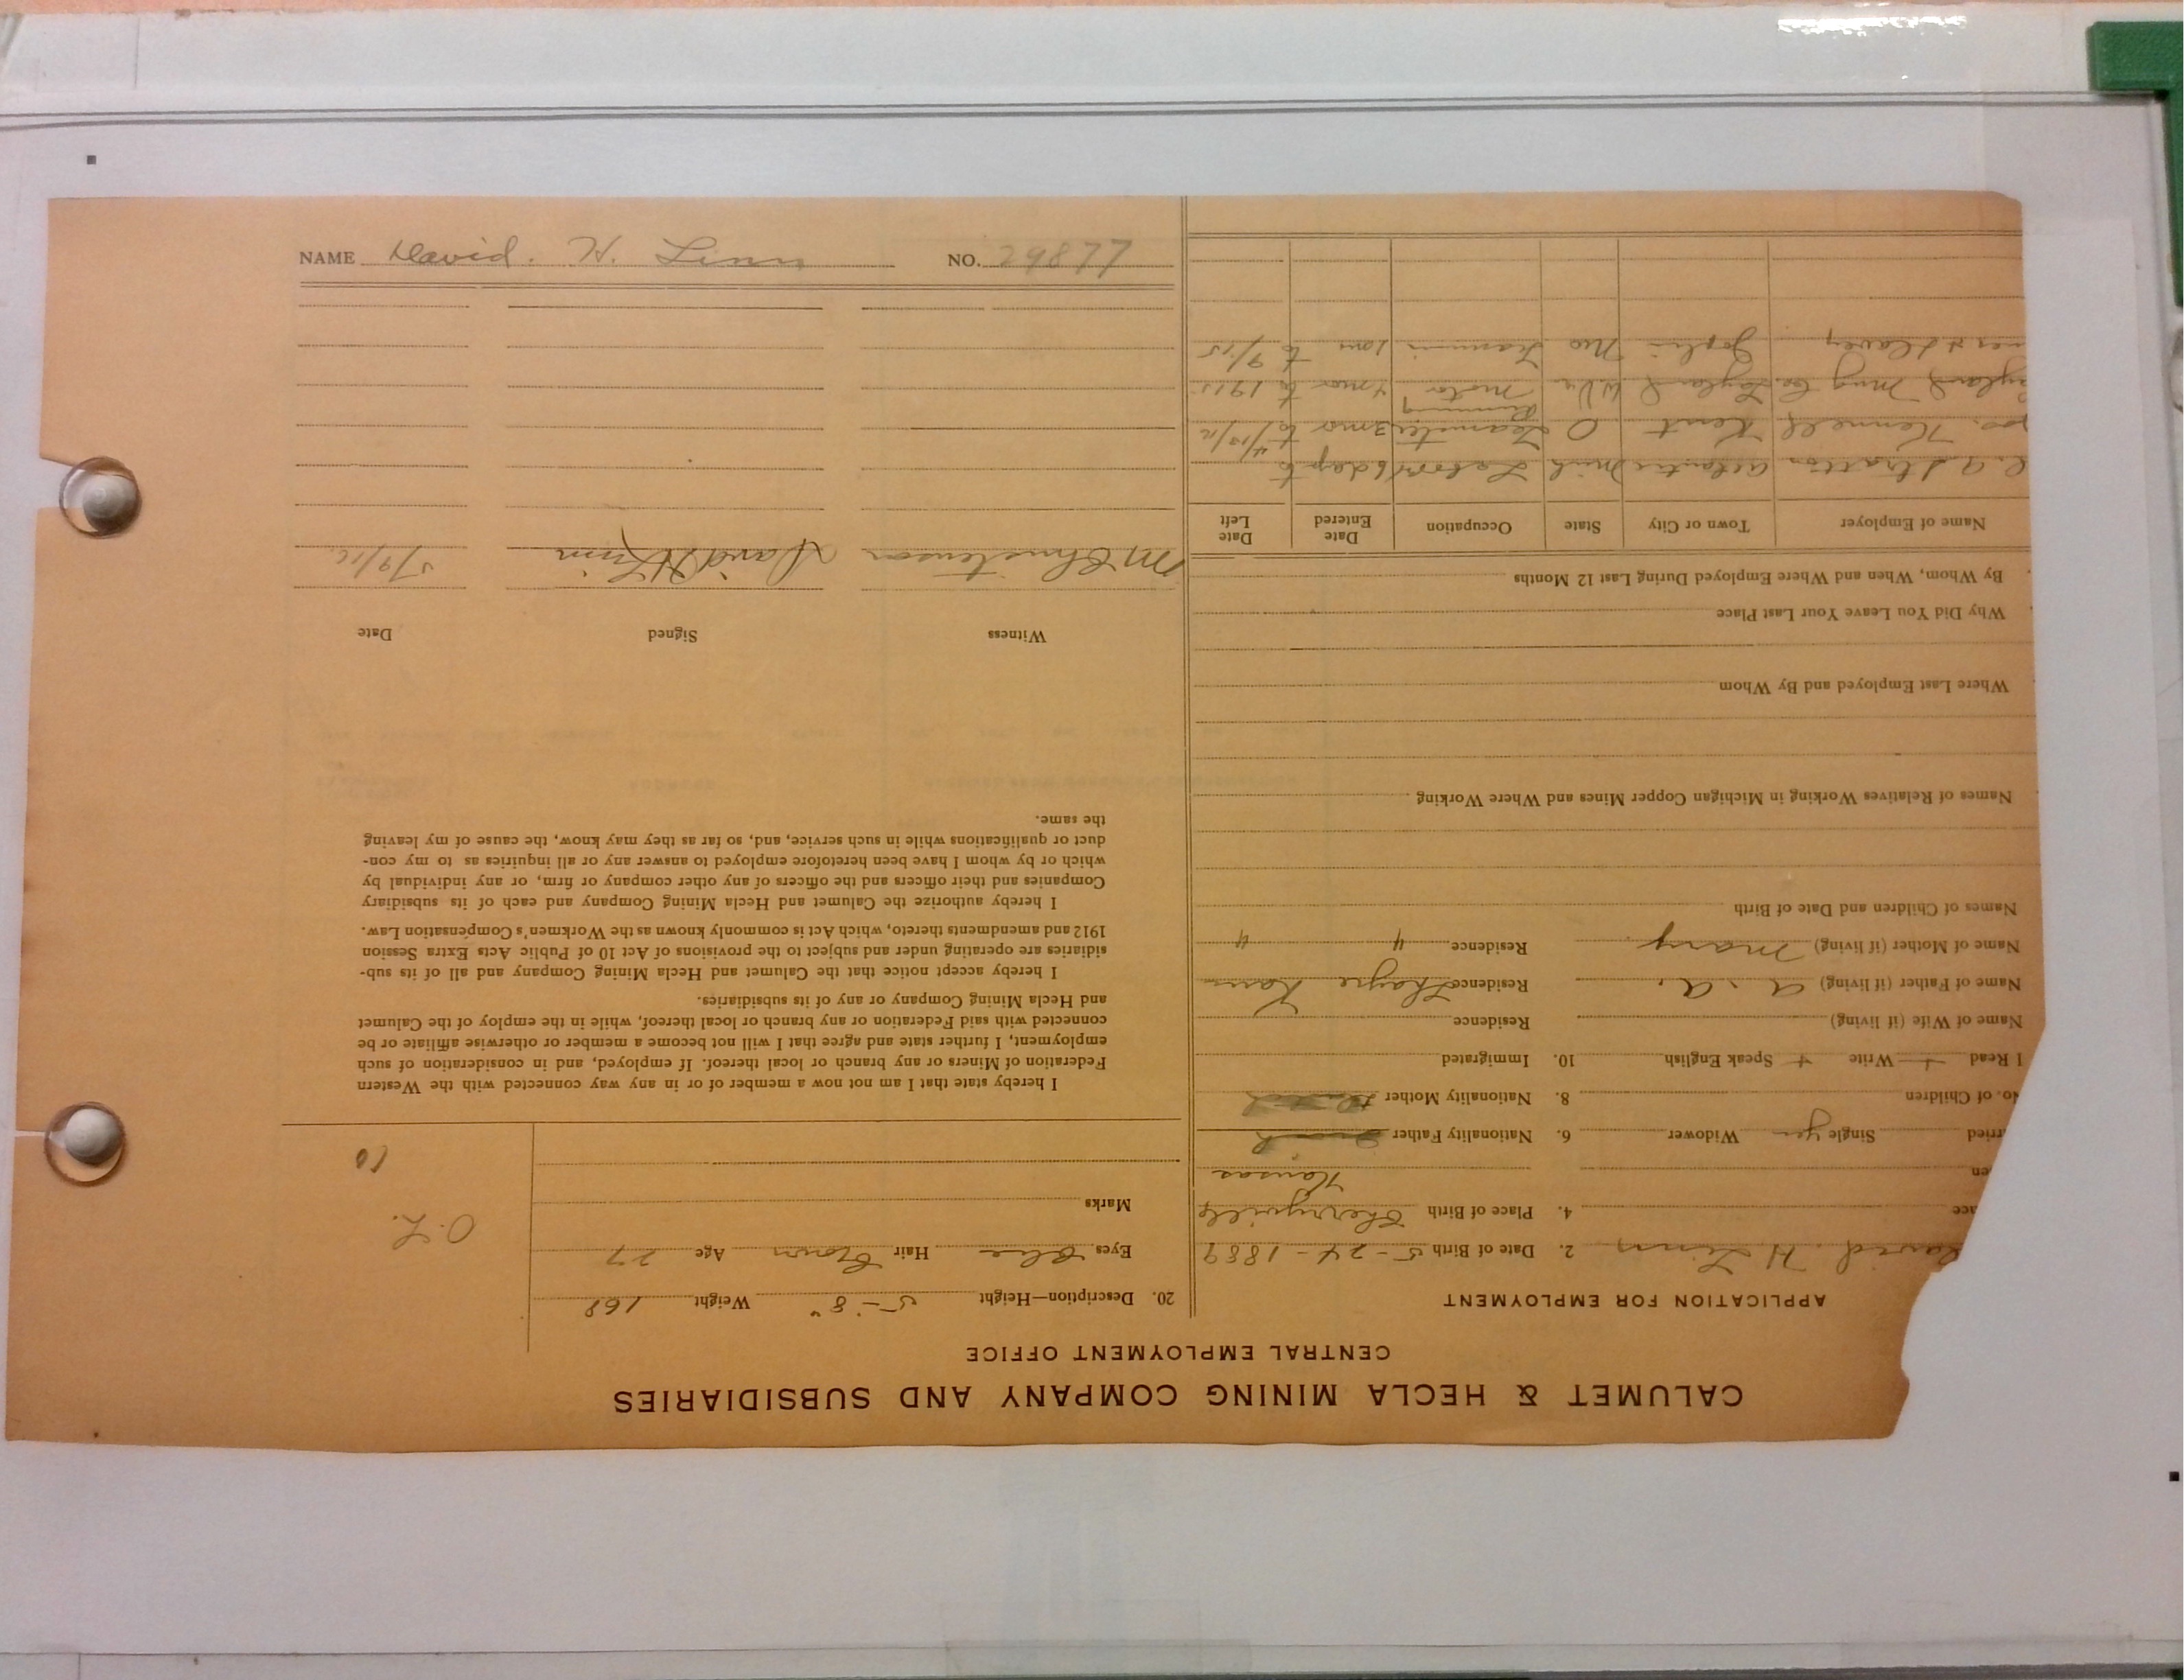 NAME David. H. Linn NO. 29877
CALUMET & HECLA MINING COMPANY AND SUBSIDIARIES
CENTRAL EMPLOYMENT OFFICE
APPLICATION FOR EMPLOYMENT
David. H Linn 2. Date of Birth 5-24-1889
ace 4. Place of Birth Cherryvile
en Kansas
rried Single yes Widower 6. Nationality Father
No. of Children 8. Nationality Mother
I Read + Write + Speak English 10. Immigrated
Name of Wife (if living) Residence
Name of Father (if living) A. A. Residence Thayre Kans
Name of Mother (if living) Mary Residence " "
Names of Children and Date of Birth
Names of Relatives Working in Michigan Copper Mines and Where Working
Where Last Employed and By Whom
Why Did You Leave Your Last Place
By Whom, When and Where Employed During Last 12 Months
Name of Employer Town or City State Occupation Date Entered Date Left
C. A Stratton Atlantic Mich Labor 6 days to
Kennell Kent O Teamster 3 mos to 4/15/16
Running
Mng Co. Layland W.Va Motor 4 mos to 1915
Joplin Mo 1 to 9/15
20. Description—Height 5-8" Weight 168
Eyes Blue Hair Brown Age 27
Marks
O.L.
10
I hereby state that I am not now a member of or in any way connected with the Western
Federation of Miners or any branch or local thereof. If employed, and in consideration of such
employment, I further state and agree that I will not become a member or otherwise affiliate or be
connected with said Federation or any branch or local thereof, while in the employ of the Calumet
and Hecla Mining Company or any of its subsidiaries.
I hereby accept notice that the Calumet and Hecla Mining Company and all of its sub-
sidiaries are operating under and subject to the provisions of Act 10 of Public Acts Extra Session
1912 and amendments thereto, which Act is commonly known as the Workmen's Compensation Law.
I hereby authorize the Calumet and Hecla Mining Company and each of its subsidiary
Companies and their officers and the officers of any other company or firm, or any individual by
which or by whom I have been heretofore employed to answer any or all inquiries as to my con-
duct or qualifications while in such service, and, so far as they may know, the cause of my leaving
the same.
Witness Signed Date
M Christenson David H Linn 5/9/16